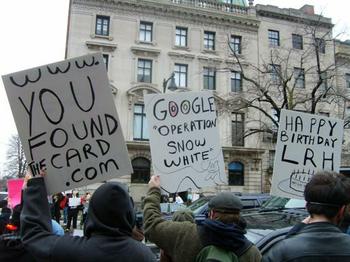 WWW.
YOU
FOUND
THE
CARD
.COM
GOOGLE
"OPERATION
SNOW
WHITE"
HAPPY
BIRTHDAY
LRH